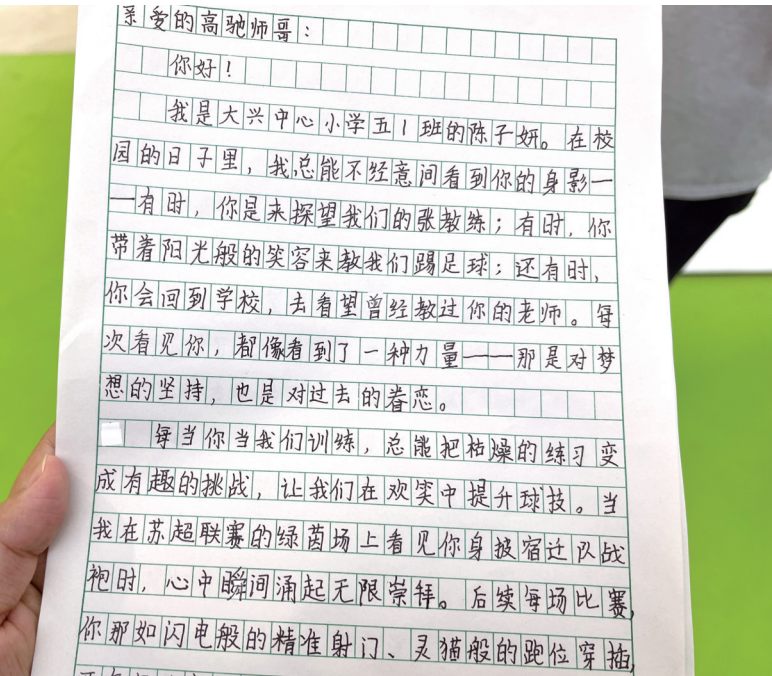 亲爱的高驰师哥：
你好！
我是大兴中心小学五1班的陈子妍。在校
园的日子里，我总能不经意间看到你的身影一
一有时，你是来探望我们的张教练；有时，你
带着阳光般的笑容来教我们踢足球；还有时，
你会回到学校，去看望曾经教过你的老师。每
次看见你，都像看到了一种力量——那是对梦
想的坚持，也是对过去的眷恋。
每当你当我们训练，总能把枯燥的练习变
成有趣的挑战，让我们在欢笑中提升球技。当
我在苏超联赛的绿茵场上看见你身披宿迁队战
袍时，心中瞬间涌起无限崇拜。后续每场比赛，
你那如闪电般的精准射门、灵猫般的跑位穿插，